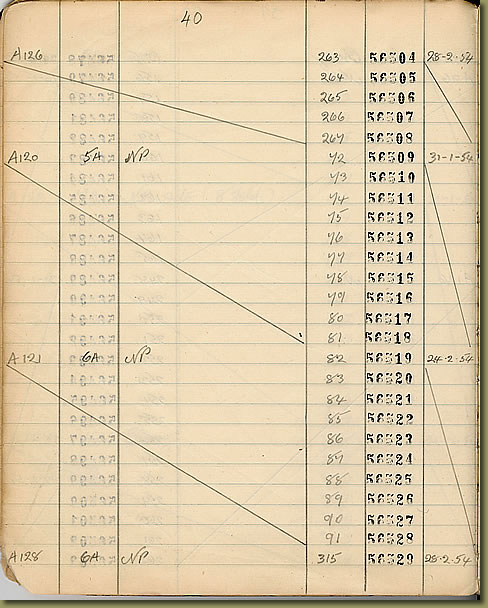 40
A126 263 56504 28-2-54
264 56505
265 56506
266 56507
267 56508
A120 5A NP 72 56509 31-1-54
73 56510
74 56511
75 56512
76 56513
77 56514
78 56515
79 56516
80 56517
81 56518
A121 6A NP 82 56519 24-2-54
83 56520
84 56521
85 56522
86 56523
87 56524
88 56525
89 56526
90 56527
91 56528
A128 6A NP 315 56529 28-2-54